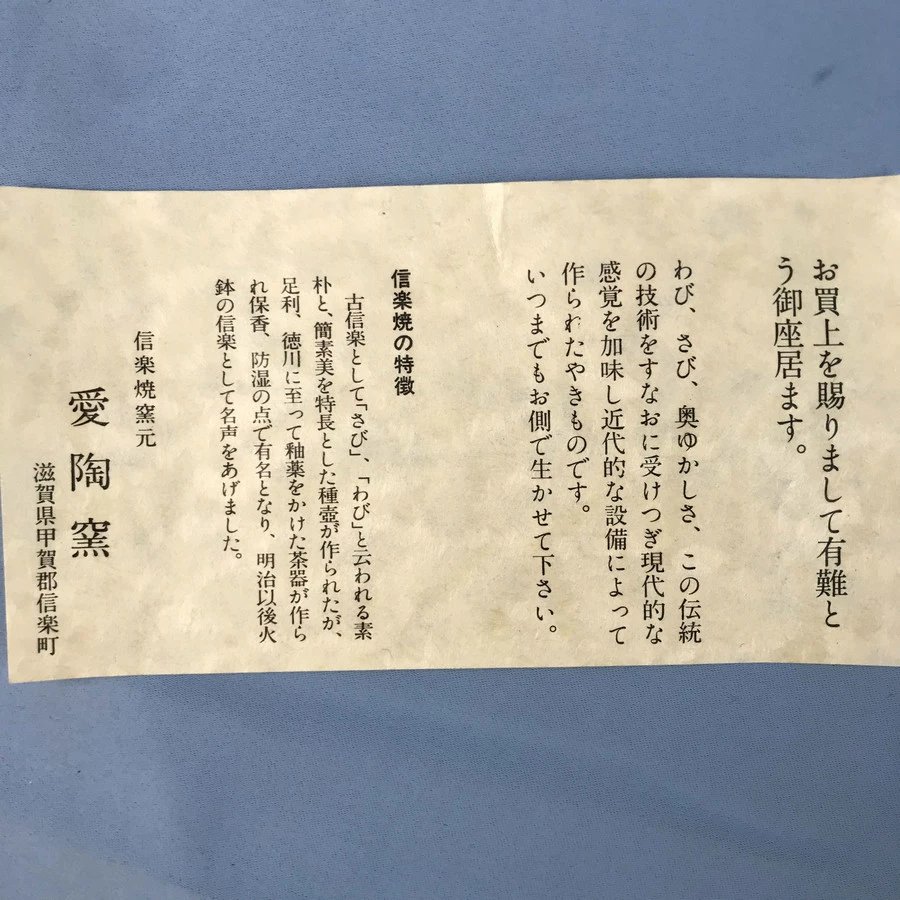 お買上を賜りまして有難と
う御座居ます。
わび、さび、奥ゆかしさ、この伝統
の技術をすなおに受けつぎ現代的な
感覚を加味し近代的な設備によって
作られたやきものです。
いつまでもお側で生かせて下さい。
信楽焼の特徴
古信楽として「さび」、「わび」と云われる素
朴と、簡素美を特長とした種壺が作られたが、
足利、徳川に至って釉薬をかけた茶器が作ら
れ保香、防湿の点で有名となり、明治以後火
鉢の信楽として名声をあげました。
信楽焼窯元
愛陶窯
滋賀県甲賀郡信楽町